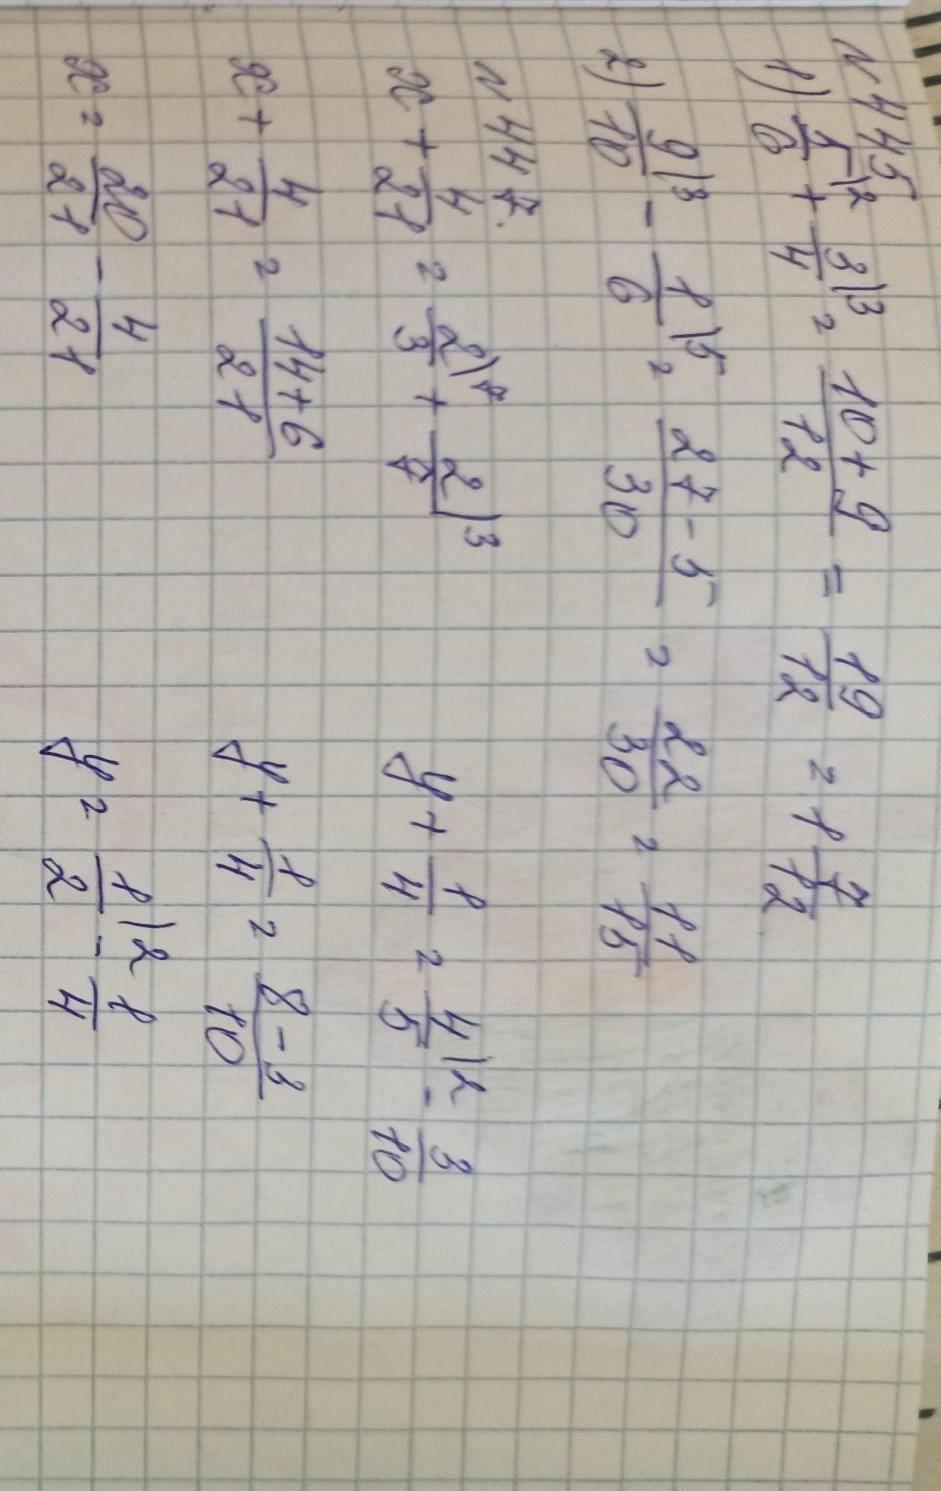 № 445
1) 5/6 |2 + 3/4 |3 = 10+9/12 = 19/12 = 1 7/12
2) 9/10 |3 - 1/6 |5 = 27-5/30 = 22/30 = 11/15
№ 447.
x + 4/21 = 2/3 |7 + 2/7 |3
x + 4/21 = 14+6/21
x = 20/21 - 4/21
y + 1/4 = 4/5 |2 - 3/10
y + 1/4 = 8-3/10
y = 1/2 |2 - 1/4